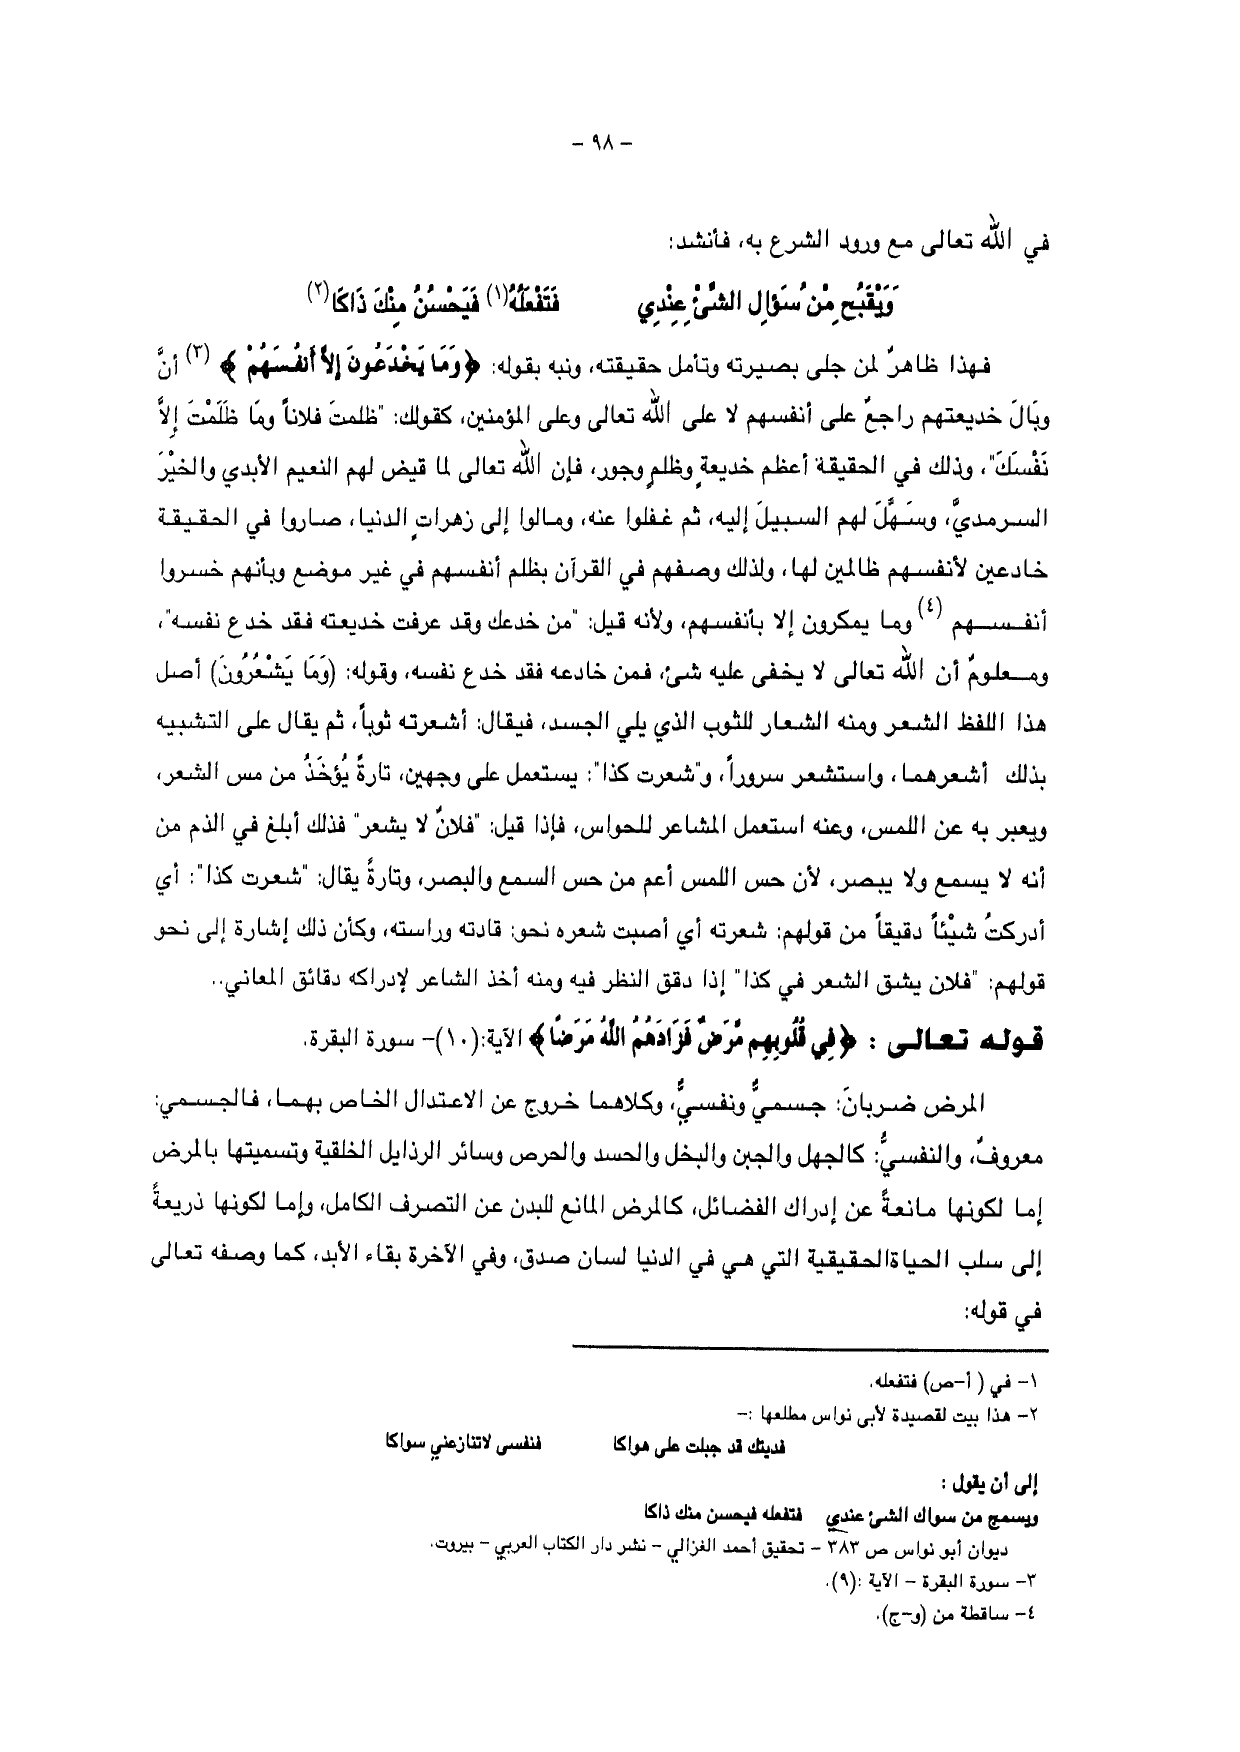 - ٩٨ -
في الله تعالى مع ورود الشرع به، فأنشد:
وَيَقْبُحِ مْنْ سُؤَالِ الشَّئْ عِنْدِي فَتَفْعَلُهُ(١) فَيَحْسُنُ مِنْكَ ذَاكَا(٢)
فهذا ظاهرٌ لمن جلى بصيرته وتأمل حقيقته، ونبه بقوله: ﴿وَمَا يَخْدَعُونَ إِلاَّ أَنفُسَهُمْ ﴾ (٣) أنَّ
وبَالَ خديعتهم راجعٌ على أنفسهم لا على الله تعالى وعلى المؤمنين، كقولك: "ظلمتَ فلاناً ومَا ظَلَمْتَ إِلاَّ
نَفْسَكَ"، وذلك في الحقيقة أعظم خديعةٍ وظلمٍ وجور، فإن الله تعالى لما قيض لهم النعيم الأبدي والخيْرَ
السرمديَّ، وسَهَّلَ لهم السبيلَ إليه، ثم غفلوا عنه، ومالوا إلى زهراتِ الدنيا، صاروا في الحقيقة
خادعين لأنفسهم ظالمين لها، ولذلك وصفهم في القرآن بظلم أنفسهم في غير موضع وبأنهم خسروا
أنفسهم (٤) وما يمكرون إلا بأنفسهم، ولأنه قيل: "من خدعك وقد عرفت خديعته فقد خدع نفسه"،
ومعلومٌ أن الله تعالى لا يخفى عليه شئ، فمن خادعه فقد خدع نفسه، وقوله: (وَمَا يَشْعُرُونَ) أصل
هذا اللفظ الشعر ومنه الشعار للثوب الذي يلي الجسد، فيقال: أشعرته ثوباً، ثم يقال على التشبيه
بذلك أشعرهما، واستشعر سروراً، و"شعرت كذا": يستعمل على وجهين، تارةً يُؤخَذُ من مس الشعر،
ويعبر به عن اللمس، وعنه استعمل المشاعر للحواس، فإذا قيل: "فلانٌ لا يشعر" فذلك أبلغ في الذم من
أنه لا يسمع ولا يبصر، لأن حس اللمس أعم من حس السمع والبصر، وتارةً يقال: "شعرت كذا": أي
أدركتُ شيْئاً دقيقاً من قولهم: شعرته أي أصبت شعره نحو: قادته وراسته، وكأن ذلك إشارة إلى نحو
قولهم: "فلان يشق الشعر في كذا" إذا دقق النظر فيه ومنه أخذ الشاعر لإدراكه دقائق المعاني..
قوله تعالى : ﴿فِي قُلُوبِهِم مَّرَضٌ فَزَادَهُمُ اللَّهُ مَرَضًا﴾ الآية:(١٠)- سورة البقرة.
المرض ضربانَ: جسميٌّ ونفسيٌّ، وكلاهما خروج عن الاعتدال الخاص بهما، فالجسمي:
معروفٌ، والنفسيُّ: كالجهل والجبن والبخل والحسد والحرص وسائر الرذايل الخلقية وتسميتها بالمرض
إما لكونها مانعةً عن إدراك الفضائل، كالمرض المانع للبدن عن التصرف الكامل، وإما لكونها ذريعةً
إلى سلب الحياةالحقيقية التي هي في الدنيا لسان صدق، وفي الآخرة بقاء الأبد، كما وصفه تعالى
في قوله:
١- في ( أ-ص) فتفعله.
٢- هذا بيت لقصيدة لأبى نواس مطلعها :-
فديتك قد جبلت على هواكا فنفسى لاتنازعني سواكا
إلى أن يقول :
ويسمج من سواك الشئ عندي فتفعله فيحسن منك ذاكا
ديوان أبو نواس ص ٣٨٣ - تحقيق أحمد الغزالي - نشر دار الكتاب العربي - بيروت.
٣- سورة البقرة - الآية :(٩).
٤- ساقطة من (و-ج).